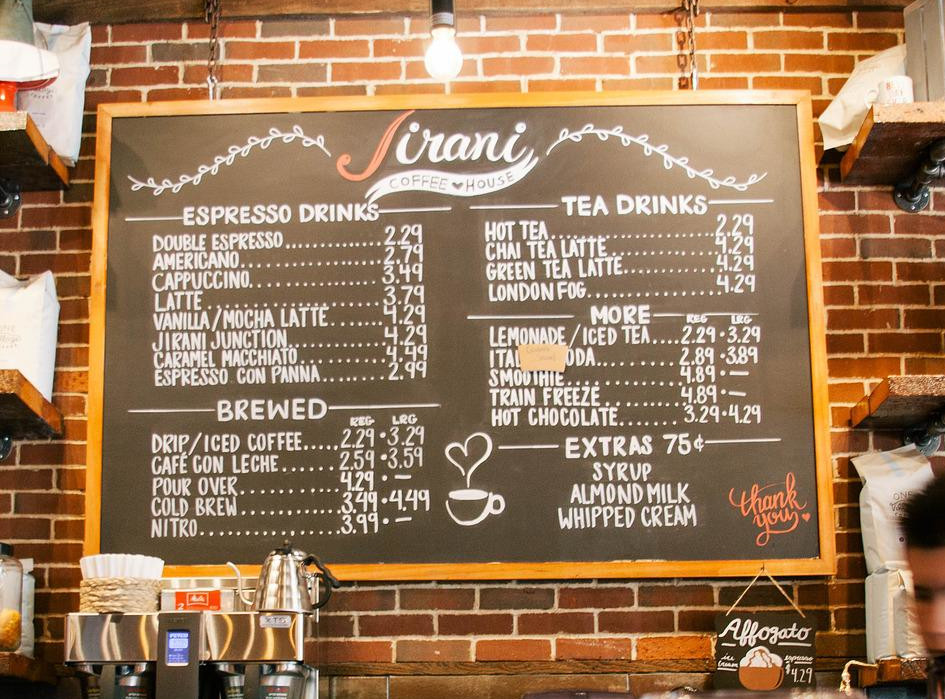 Jirani
COFFEE HOUSE
ESPRESSO DRINKS
DOUBLE ESPRESSO 2.29
AMERICANO 2.79
CAPPUCCINO 3.49
LATTE 3.79
VANILLA/MOCHA LATTE 4.29
JIRANI JUNCTION 4.29
CARAMEL MACCHIATO 4.49
ESPRESSO CON PANNA 2.99
BREWED
REG LRG
DRIP/ICED COFFEE 2.29 • 3.29
CAFÉ CON LECHE 2.59 • 3.59
POUR OVER 4.29 • —
COLD BREW 3.49 • 4.49
NITRO 3.99 • —
TEA DRINKS
HOT TEA 2.29
CHAI TEA LATTE 4.29
GREEN TEA LATTE 4.29
LONDON FOG 4.29
MORE REG LRG
LEMONADE/ICED TEA 2.29 • 3.29
2.89 • 3.89
SMOOTHIE 4.89 • —
TRAIN FREEZE 4.89 • —
HOT CHOCOLATE 3.29 • 4.29
EXTRAS 75¢
SYRUP
ALMOND MILK
WHIPPED CREAM
thank
you
Melitta
Affogato
ice cream
espresso
$4.29